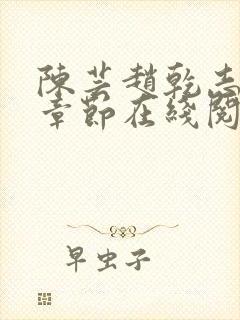 陳芸趙乾志
章節在綫閱
早虫子